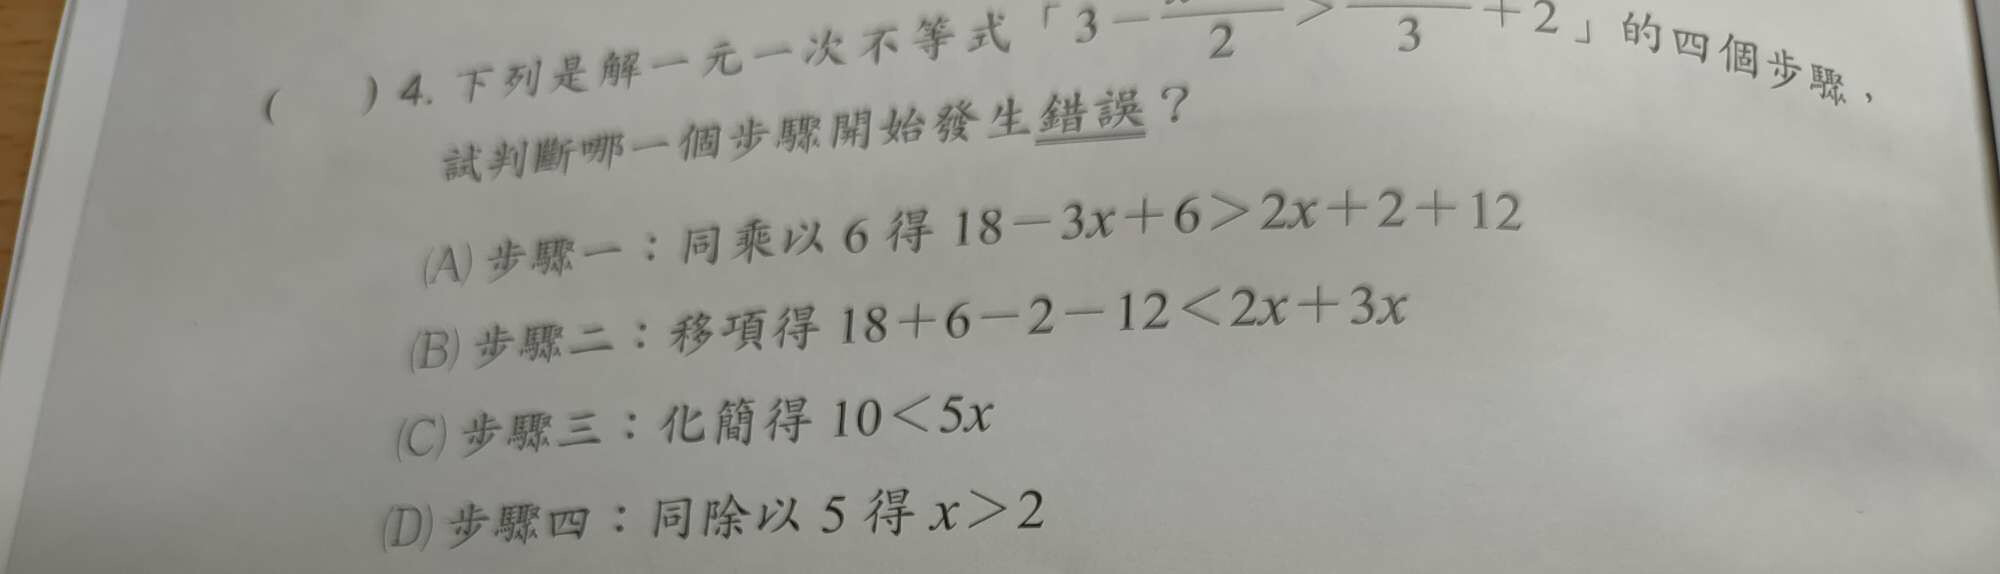 (  ) 4. 下列是解一元一次不等式「3－ 2 ＞ 3 ＋2」的四個步驟，
試判斷哪一個步驟開始發生錯誤？
(A) 步驟一：同乘以 6 得 18－3x＋6＞2x＋2＋12
(B) 步驟二：移項得 18＋6－2－12＜2x＋3x
(C) 步驟三：化簡得 10＜5x
(D) 步驟四：同除以 5 得 x＞2